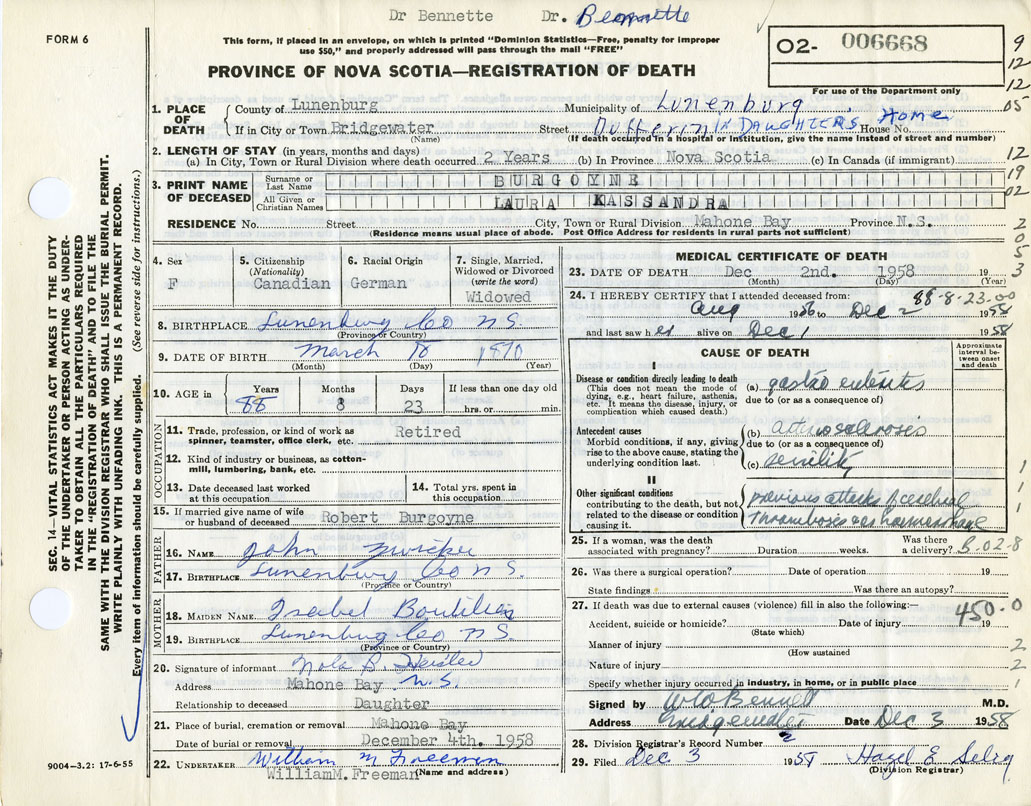 Dr Bennette Dr. Bennette
FORM 6
This form, if placed in an envelope, on which is printed "Dominion Statistics—Free, penalty for improper
use $50," and properly addressed will pass through the mail "FREE"
O2- 006668
For use of the Department only
PROVINCE OF NOVA SCOTIA—REGISTRATION OF DEATH
9
12
12
05
12
19
02
2
0
5
3
1. PLACE OF DEATH
County of Lunenburg Municipality of Lunenburg
If in City or Town Bridgewater Street Dufferin IN DAUGHTERS Home House No.
(Name) (If death occurred in a hospital or institution, give the name instead of street and number)
2. LENGTH OF STAY (in years, months and days)
(a) In City, Town or Rural Division where death occurred 2 Years (b) In Province Nova Scotia (c) In Canada (if immigrant)
3. PRINT NAME OF DECEASED
Surname or Last Name BURGOYNE
All Given or Christian Names LAURA KASSANDRA
RESIDENCE No. Street City, Town or Rural Division Mahone Bay Province N.S.
(Residence means usual place of abode. Post Office Address for residents in rural parts not sufficient)
4. Sex
F
5. Citizenship
(Nationality)
Canadian
6. Racial Origin
German
7. Single, Married,
Widowed or Divorced
(write the word)
Widowed
8. BIRTHPLACE Lunenburg Co N S.
(Province or Country)
9. DATE OF BIRTH March 18 1870
(Month) (Day) (Year)
10. AGE in
Years 88
Months 8
Days 23
If less than one day old
hrs. or min.
OCCUPATION
11. Trade, profession, or kind of work as
spinner, teamster, office clerk, etc. Retired
12. Kind of industry or business, as cotton-
mill, lumbering, bank, etc.
13. Date deceased last worked
at this occupation
14. Total yrs. spent in
this occupation
15. If married give name of wife
or husband of deceased Robert Burgoyne
FATHER
16. NAME John Zwicker
17. BIRTHPLACE Lunenburg Co N S.
(Province or Country)
MOTHER
18. MAIDEN NAME Isabel Boutilier
19. BIRTHPLACE Lunenburg Co N S.
(Province or Country)
20. Signature of informant Nola B. Heisler
Address Mahone Bay N.S.
Relationship to deceased Daughter
21. Place of burial, cremation or removal Mahone Bay
Date of burial or removal December 4th. 1958
22. UNDERTAKER William M Freeman
William M. Freeman (Name and address)
MEDICAL CERTIFICATE OF DEATH
23. DATE OF DEATH Dec 2nd. 1958 19
(Month) (Day) (Year)
88-8-23-00
24. I HEREBY CERTIFY that I attended deceased from:
Aug 1956 to Dec 2 1958
and last saw her alive on Dec 1 1958
CAUSE OF DEATH
Approximate
interval be-
tween onset
and death
I
Disease or condition directly leading to death
(This does not mean the mode of
dying, e.g., heart failure, asthenia,
etc. It means the disease, injury, or
complication which caused death.)
(a) gastro enteritis
due to (or as a consequence of)
Antecedent causes
Morbid conditions, if any, giving
rise to the above cause, stating the
underlying condition last.
(b) arteriosclerosis
due to (or as a consequence of)
(c) senility
II
Other significant conditions
contributing to the death, but not
related to the disease or condition
causing it.
previous attacks of cerebral
thromboses &amp; haemorrhage
1
1
1
25. If a woman, was the death
associated with pregnancy? Duration weeks. Was there
a delivery? B.02-8
26. Was there a surgical operation? Date of operation 19
State findings Was there an autopsy?
27. If death was due to external causes (violence) fill in also the following:—
450.0
Accident, suicide or homicide? Date of injury 19
(State which)
Manner of injury 2
(How sustained
Nature of injury 2
Specify whether injury occurred in industry, in home, or in public place 1
Signed by W O Bennett M.D.
Address Bridgewater Date Dec 3 1958
28. Division Registrar's Record Number 2
29. Filed Dec 3 1958 Hazel E. Selig
(Division Registrar)
SEC. 14—VITAL STATISTICS ACT MAKES IT THE DUTY
OF THE UNDERTAKER OR PERSON ACTING AS UNDER-
TAKER TO OBTAIN ALL THE PARTICULARS REQUIRED
IN THE "REGISTRATION OF DEATH" AND TO FILE THE
SAME WITH THE DIVISION REGISTRAR WHO SHALL ISSUE THE BURIAL PERMIT.
WRITE PLAINLY WITH UNFADING INK. THIS IS A PERMANENT RECORD.
Every item of information should be carefully supplied. (See reverse side for instructions.)
9004-3.2: 17-6-55